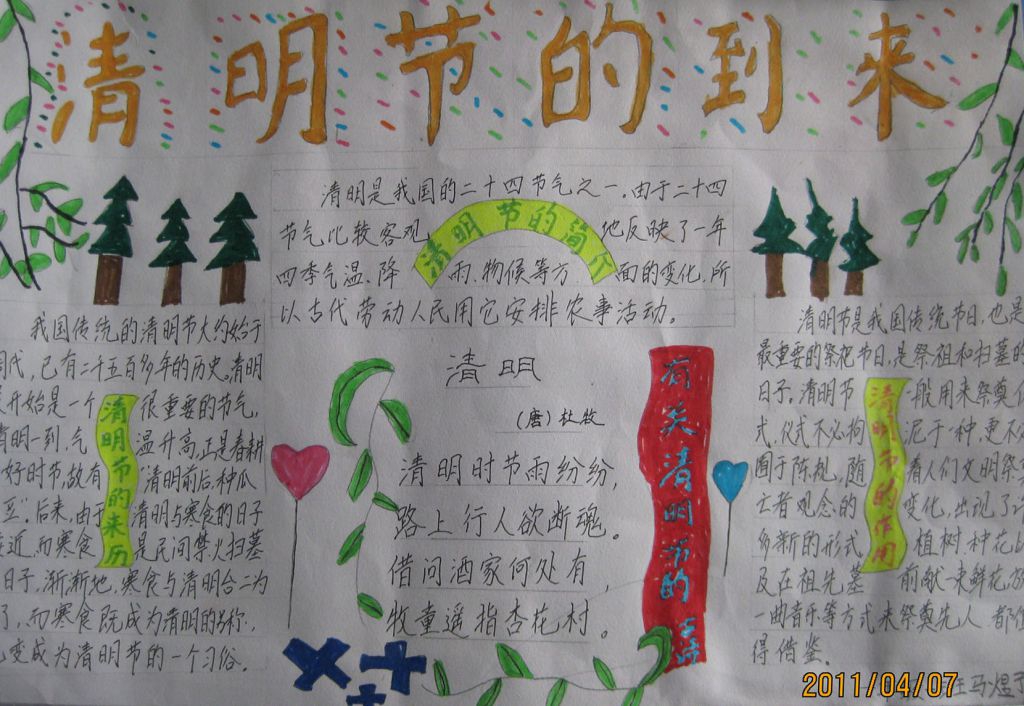 清明节的到来
清明是我国的二十四节气之一.由于二十四
节气比较客观地反映了一年
四季气温.降雨.物候等方面的变化,所
以古代劳动人民用它安排农事活动。
清明节的简介
我国传统的清明节大约始于
周代,已有二千五百多年的历史。清明
开始是一个很重要的节气,
清明一到,气温升高,正是春耕
好时节,故有“清明前后,种瓜
豆”.后来,由于清明与寒食的日子
接近,而寒食是民间禁火扫墓
日子,渐渐地,寒食与清明合二为
了,而寒食既成为清明的别称,
变成为清明节的一个习俗。
清明节的来历
清明
(唐)杜牧
清明时节雨纷纷,
路上行人欲断魂。
借问酒家何处有,
牧童遥指杏花村。
有关清明节的
清明节是我国传统节日,也是
最重要的祭祀节日,是祭祖和扫墓的
日子.清明节一般用来祭奠
式,仪式不必拘泥于一种,更不
囿于陈规,随着人们文明祭
亡者观念的变化,出现了
多新的形式植树.种花
及在祖先墓前献一束鲜花,
一曲音乐等方式来祭奠先人,都
得借鉴.
清明节的作用
2011/04/07